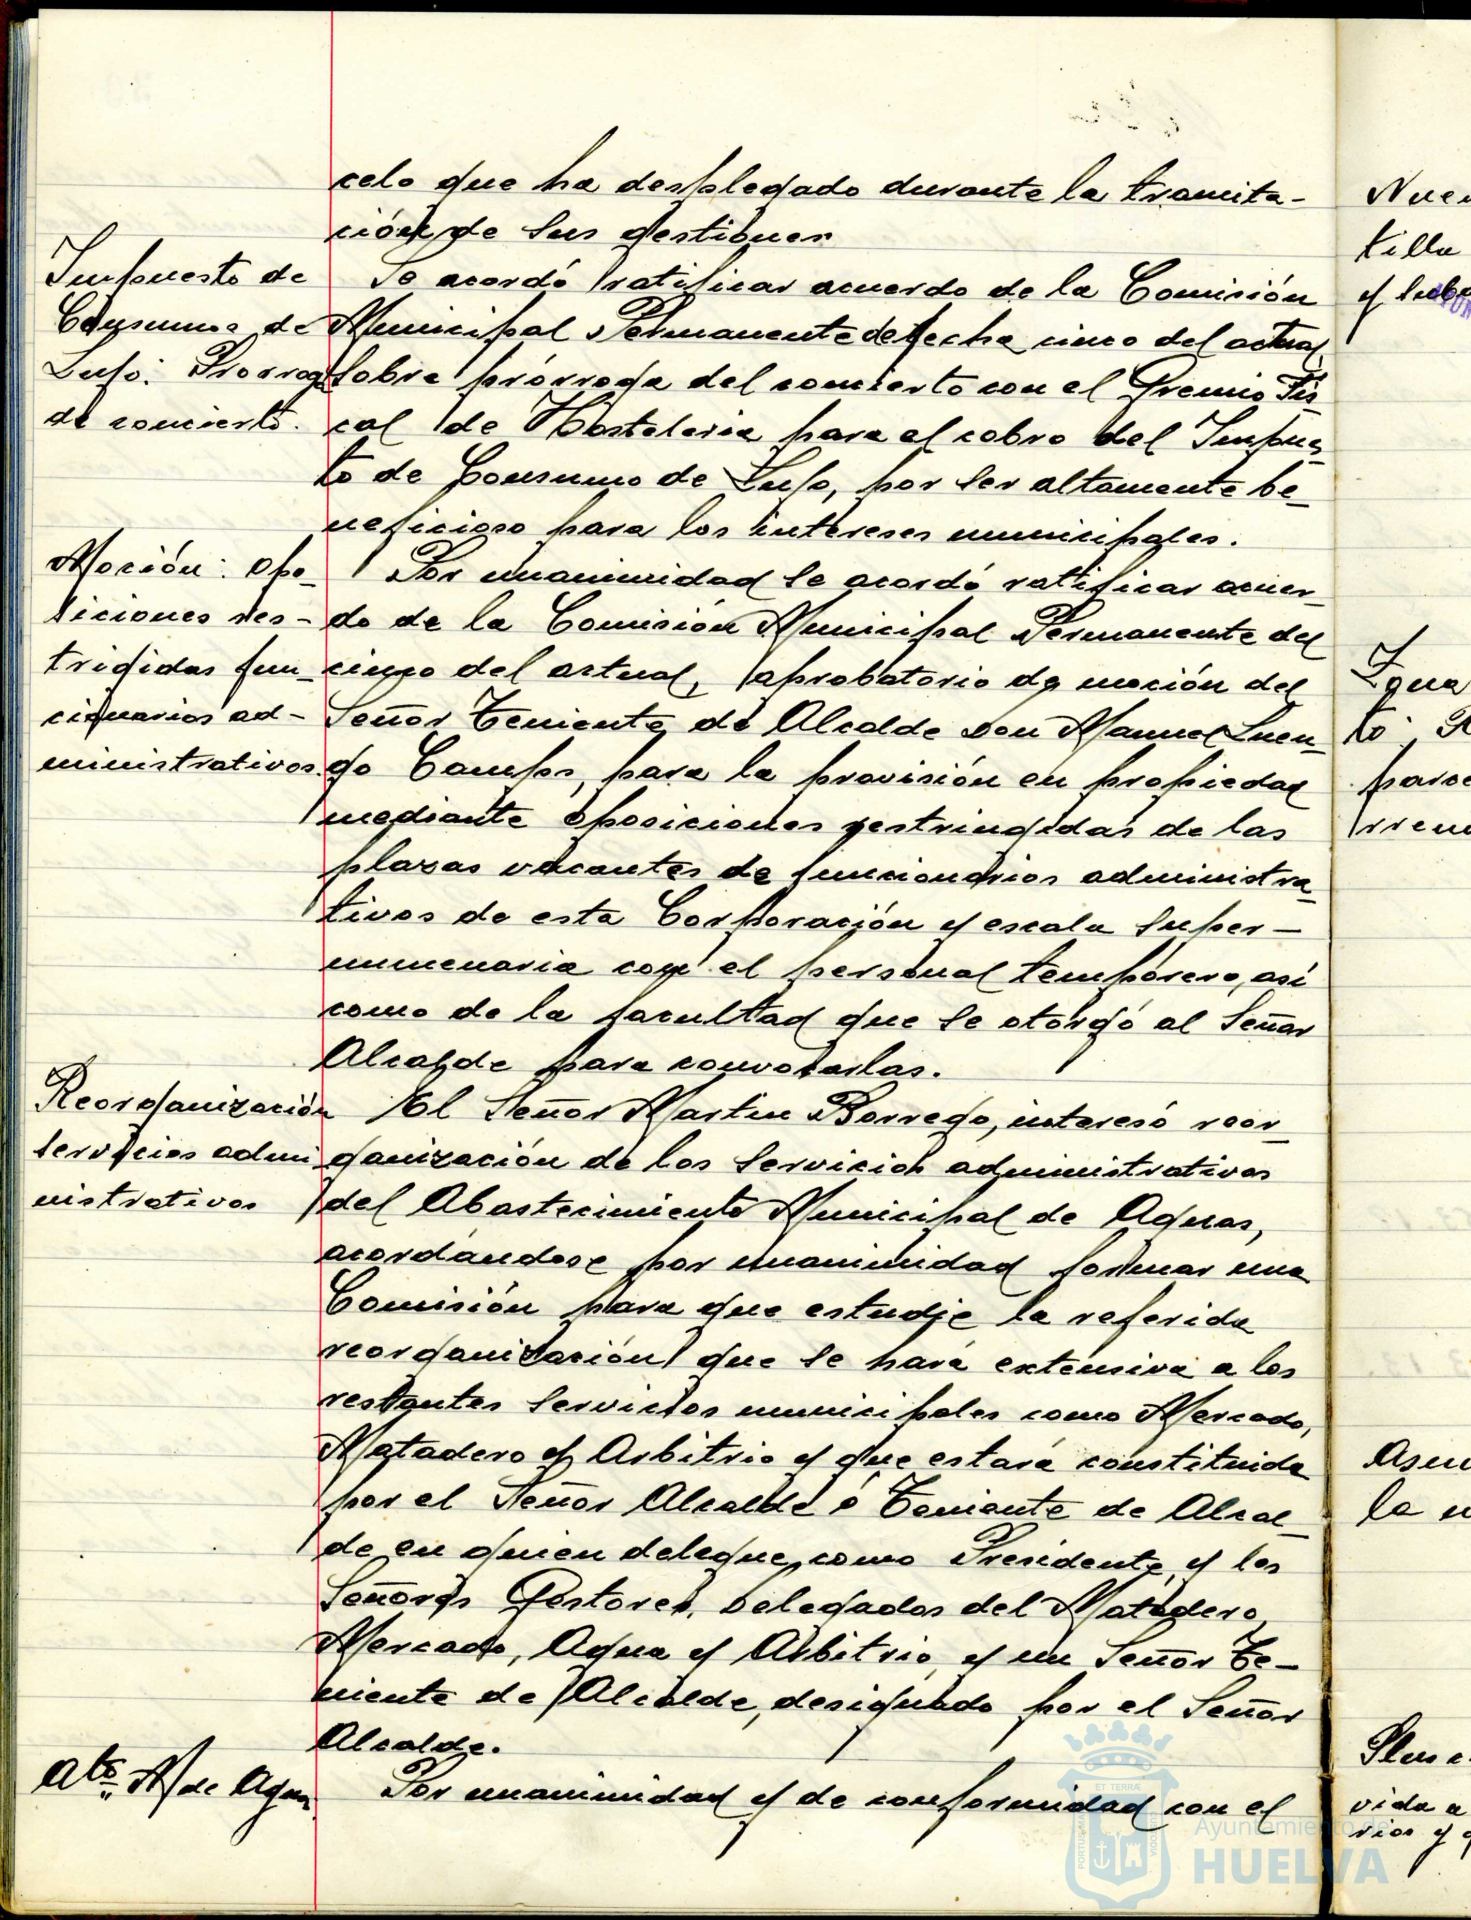 celo que ha desplegado durante la tramita-
ción de sus gestiones.
Impuesto de
Consumos de
Lujo: Prorroga
de concierto.
Se acordó ratificar acuerdo de la Comisión
Municipal Permanente de fecha cinco del actual
sobre prórroga del concierto con el Gremio Fis-
cal de Hosteleria para el cobro del Impues-
to de Consumo de Lujo, por ser altamente be-
neficioso para los intereses municipales.
Moción: Opo-
siciones res-
trigidas fun-
cionarios ad-
ministrativos.
Por unanimidad se acordó ratificar acuer-
do de la Comisión Municipal Permanente del
cinco del actual, aprobatorio de moción del
Señor Teniente de Alcalde Don Manuel Luen-
go Campos, para la provisión en propiedad
mediante oposiciones restringidas de las
plazas vacantes de funcionarios administra-
tivos de esta Corporación y escala super-
numeraria con el personal temporero, así
como de la facultad que se otorgó al Señor
Alcalde para convocarlas.
Reorganización
servicios admi
nistrativos
El Señor Martin Borrego, interesó reor-
ganización de los servicios administrativos
del Abastecimiento Municipal de Aguas,
acordándose por unanimidad formar una
Comisión para que estudie la referida
reorganización que se hará extensiva a los
restantes servicios municipales como Mercado,
Matadero y Arbitrio y que estará constituida
por el Señor Alcalde ó Teniente de Alcal-
de en quien delegue, como Presidente, y los
Señores Gestores, Delegados del Matadero,
Mercado, Agua y Arbitrio, y un Señor Te-
niente de Alcalde, designado por el Señor
Alcalde.
Abto. M. de Agua
Por unanimidad y de conformidad con el
Nuev
tilla
y sub
to
paro
rren
Asun
la
vida a
rios y
ET TERRAE
Ayuntamiento de
HUELVA